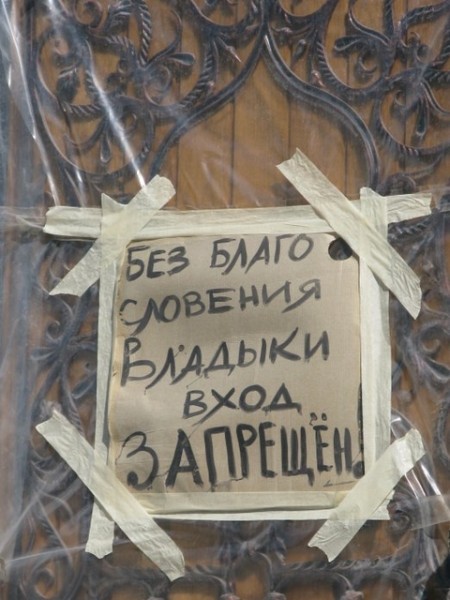 БЕЗ БЛАГО
СЛОВЕНИЯ
ВЛАДЫКИ
ВХОД
ЗАПРЕЩЁН!